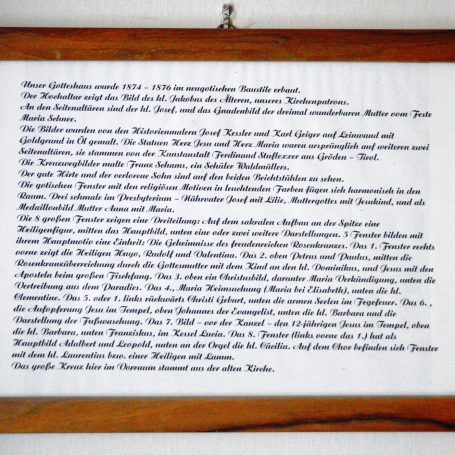 Unser Gotteshaus wurde 1874 - 1876 im neugotischen Baustile erbaut.
Der Hochaltar zeigt das Bild des hl. Jakobus des Älteren, unseres Kirchenpatrons.
An den Seitenaltären sind der hl. Josef, und das Gnadenbild der dreimal wunderbaren Mutter vom Feste
Maria Schnee.
Die Bilder wurden von den Historienmalern Josef Kessler und Karl Geiger auf Leinwand mit
Goldgrund in Öl gemalt. Die Statuen Herz Jesu und Herz Maria waren ursprünglich auf weiteren zwei
Seitenaltären, sie stammen von der Kunstanstalt Ferdinand Stuflexxer aus Gröden - Tirol.
Die Kreuzwegbilder malte Franz Schams, ein Schüler Waldmüllers.
Der gute Hirte und der verlorene Sohn sind auf den beiden Beichtstühlen zu sehen.
Die gotischen Fenster mit den religiösen Motiven in leuchtenden Farben fügen sich harmonisch in den
Raum. Drei schmale im Presbyterium - Nährvater Josef mit Lilie, Muttergottes mit Jesukind, und als
Medaillonbild Mutter Anna mit Maria.
Die 8 großen Fenster zeigen eine Dreiteilung: Auf dem sakralen Aufbau an der Spitze eine
Heiligenfigur, mitten das Hauptbild, unten eine oder zwei weitere Darstellungen. 5 Fenster bilden mit
ihrem Hauptmotiv eine Einheit: Die Geheimnisse des freudenreichen Rosenkranzes. Das 1. Fenster rechts
vorne zeigt die Heiligen Hugo, Rudolf und Valentina. Das 2. oben Petrus und Paulus, mitten die
Rosenkranzüberreichung durch die Gottesmutter mit dem Kind an den hl. Dominikus, und Jesus mit den
Aposteln beim großen Fischfang. Das 3. oben ein Christusbild, darunter Maria Verkündigung, unten die
Vertreibung aus dem Paradies. Das 4., Maria Heimsuchung (Maria bei Elisabeth), unten die hl.
Clementine. Das 5. oder 1. links rückwärts Christi Geburt, unten die armen Seelen im Fegefeuer. Das 6. ,
die Aufopferung Jesu im Tempel, oben Johannes der Evangelist, unten die hl. Barbara und die
Darstellung der Fußwaschung. Das 7. Bild - vor der Kanzel - den 12-jährigen Jesus im Tempel, oben
die hl. Barbara, unten Franziskus, im Kessel Luzia. Das 8. Fenster (links vorne das 1.) hat als
Hauptbild Adalbert und Leopold, unten an der Orgel die hl. Cäcilia. Auf dem Chor befinden sich Fenster
mit dem hl. Laurentius bzw. einer Heiligen mit Lamm.
Das große Kreuz hier im Vorraum stammt aus der alten Kirche.